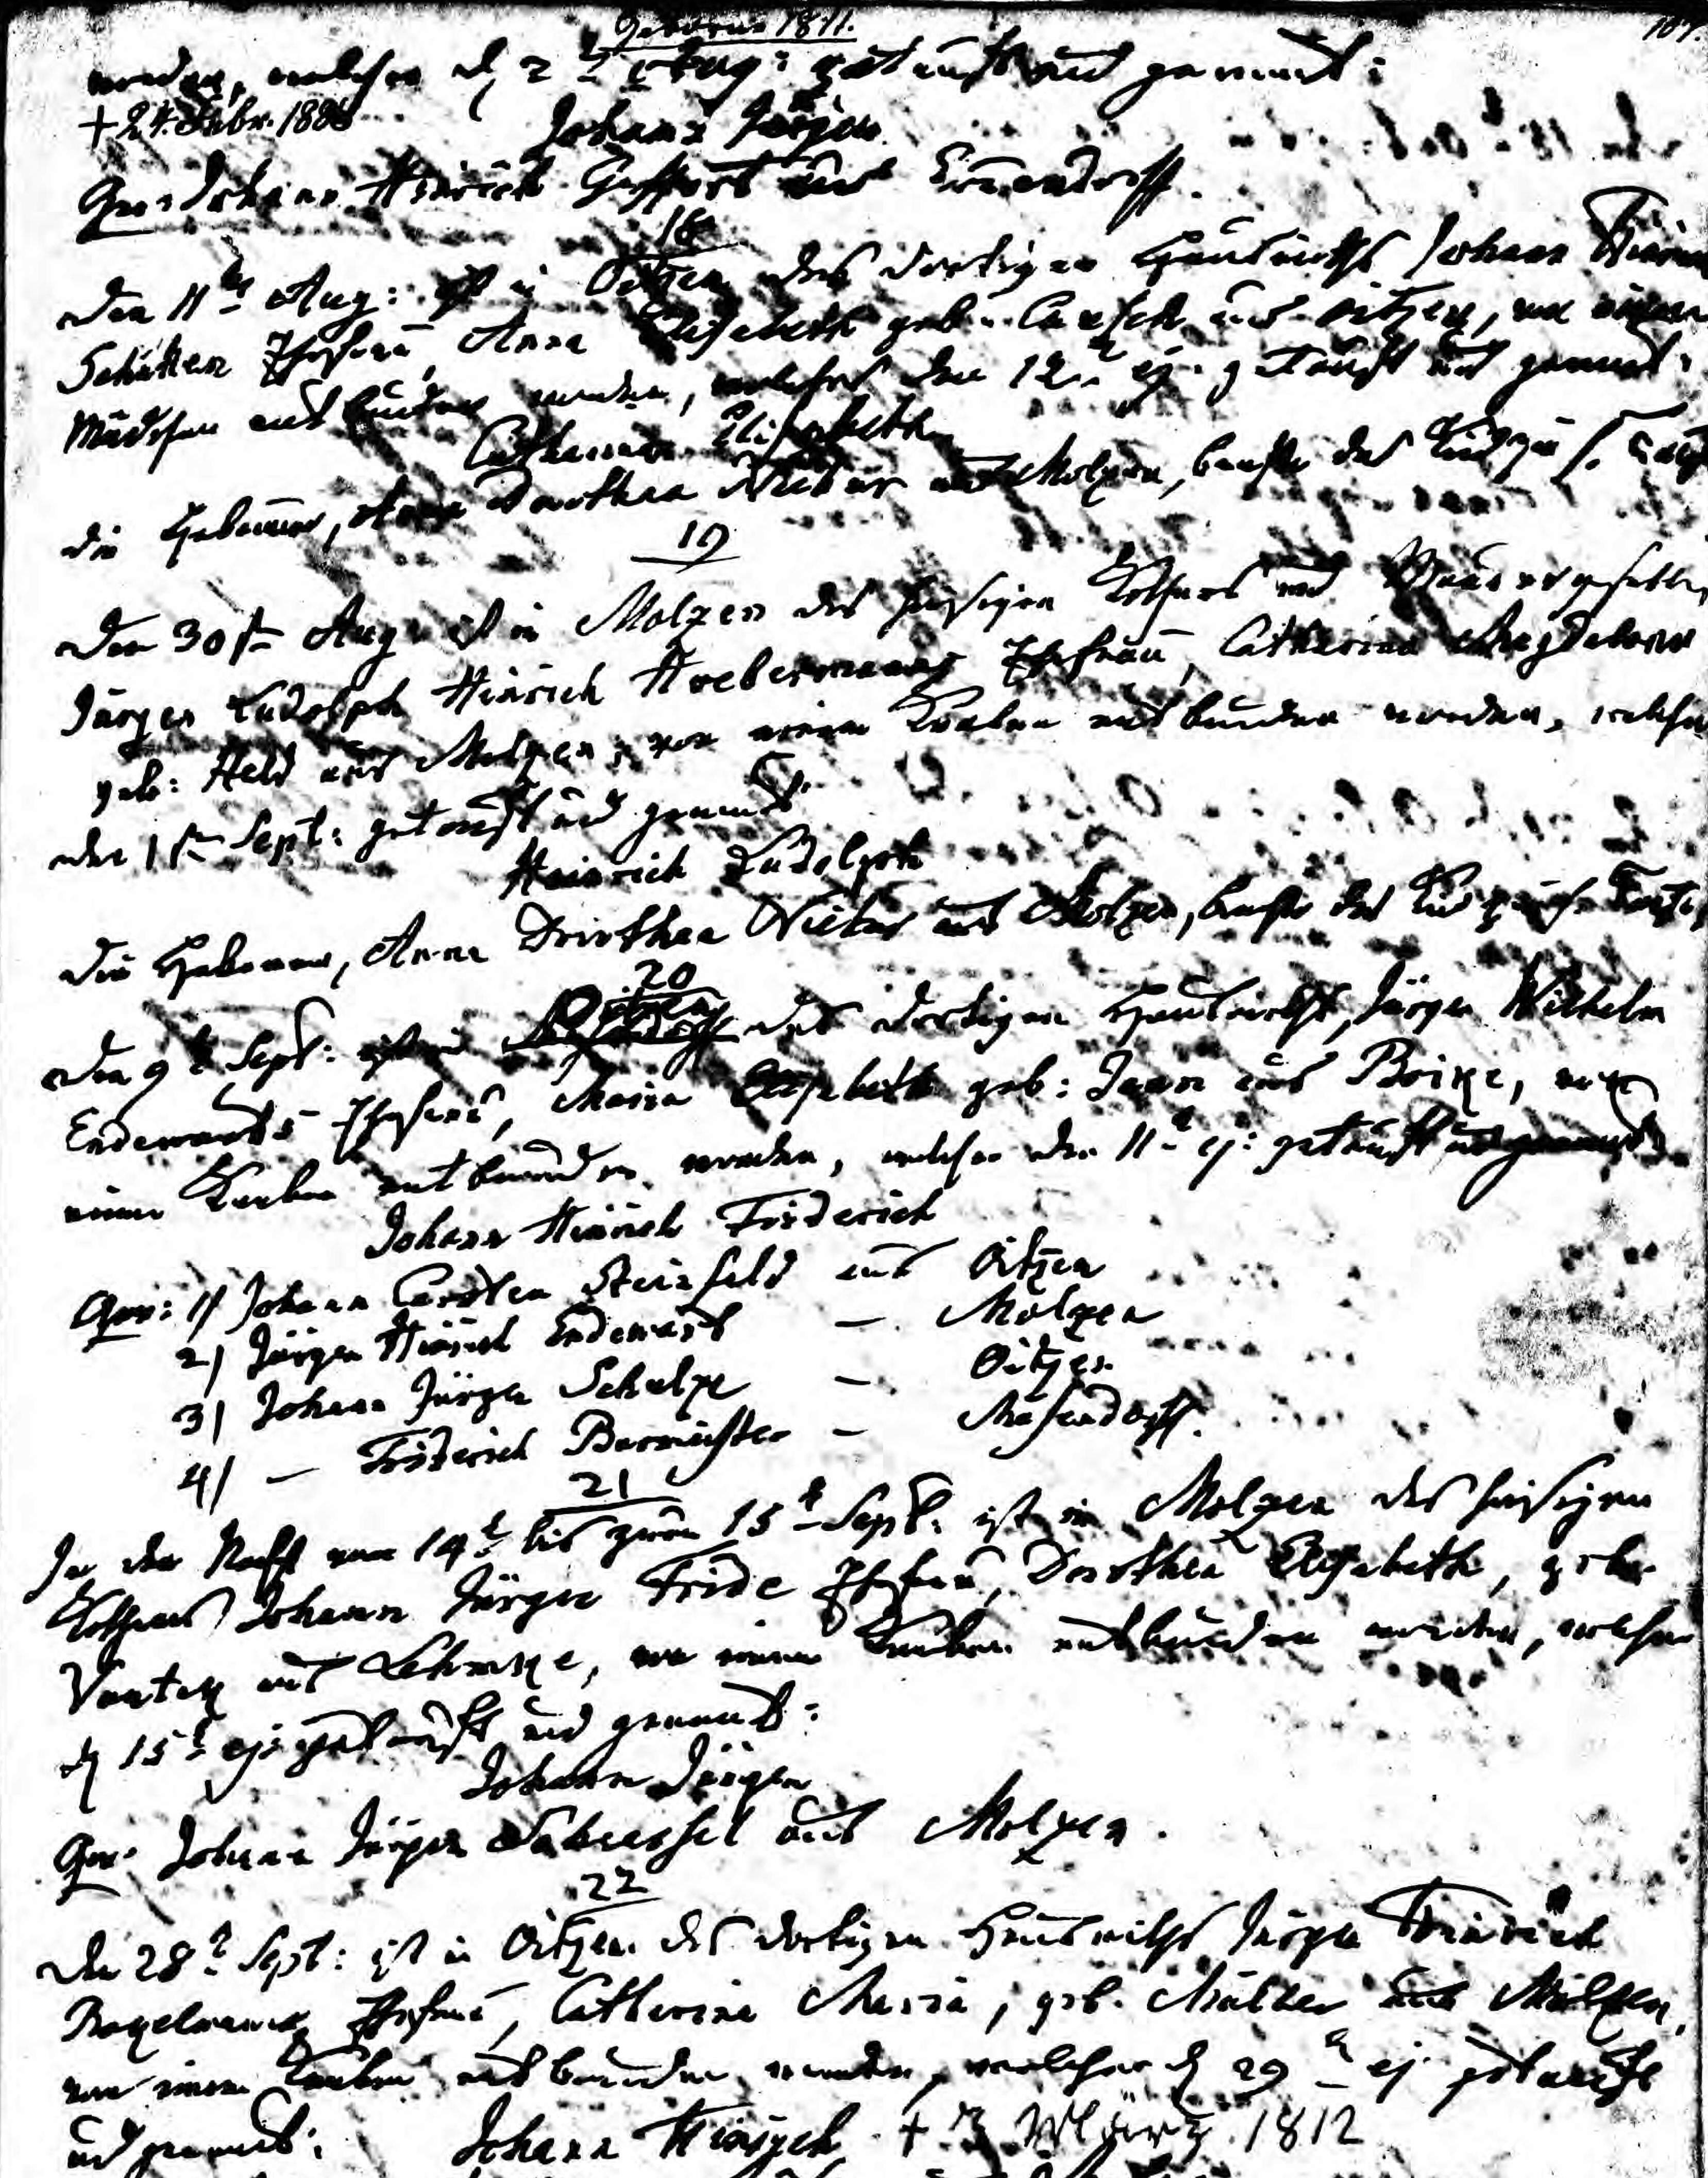 1811.
107.
worden, welcher d 2 Aug: getauft und genannt:
+ 24. Febr. 1886
Johann Jürgen
Gev: Johann Hinrich aus
18
Den 11 Aug: ist in Oitzen des dortigen Hauswirths Johann Hinrich
Schütten Ehefrau, Anna Elisabeth geb. aus Oitzen, von einem
Mädchen entbunden worden, welches den 12 ej. getauft und genannt:
Catharina Elisabeth
die Hebamme, Anna Dorothea Niebur aus Molzen, brachte das Kind zur h. Taufe
19
Den 30 st Aug. ist in Molzen des hiesigen Köthners und Maurergesellen
Jürgen Ludolph Hinrich Ehefrau, Catharina Magdalena
geb: Held aus Molzen, von einem Knaben entbunden worden, welcher
den 1 st Sept: getauft und genannt
Heinrich Ludolph
Die Hebamme, Anna Dorothea Niebur aus Molzen, brachte das Kind zur h. Taufe
20
Den 9 t Sept: ist in Oitzen des dortigen Hauswirths, Jürgen Wilhelm
Endewardts Ehefrau, Maria Elisabeth geb: aus, von
einem Knaben entbunden worden, welcher den 11 ej: getauft und genannt
Johann Hinrich Friderich
Gev: 1) Johann Carsten Steinfeld aus Oitzen
2) Jürgen Hinrich Endewardt — Molzen
3) Johann Jürgen Schulze — Oitzen
4) — Friderich Burmeister — Masendorff.
21
In der Nacht vom 14 t bis zum 15 t Sept. ist in Molzen des hiesigen
Köthners Johann Jürgen Fride Ehefrau, Dorothea Elisabeth, geb.
aus, von einem Knaben entbunden worden, welcher
d 15 t ej. getauft und genannt:
Johann Jürgen
Gev: Johann Jürgen aus Molzen.
22
Den 28 t Sept: ist in Oitzen des dortigen Hauswirths Jürgen Hinrich
Ehefrau, Catharina Maria, geb. Müller aus Molzen,
von einem Knaben entbunden worden, welcher d 29 ej getauft
und genannt: Johann Hinrich + 3 März 1812